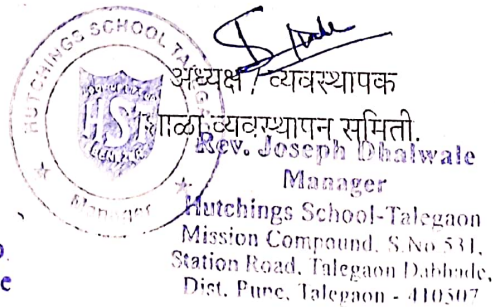 HUTCHINGS SCHOOL TALEGAON
HST
Manager
अध्यक्ष / व्यवस्थापक
शाळा व्यवस्थापन समिती.
Rev. Joseph Dhalwale
Manager
Hutchings School-Talegaon
Mission Compound, S.No 531,
Station Road, Talegaon Dabhade,
Dist. Pune, Talegaon - 410507